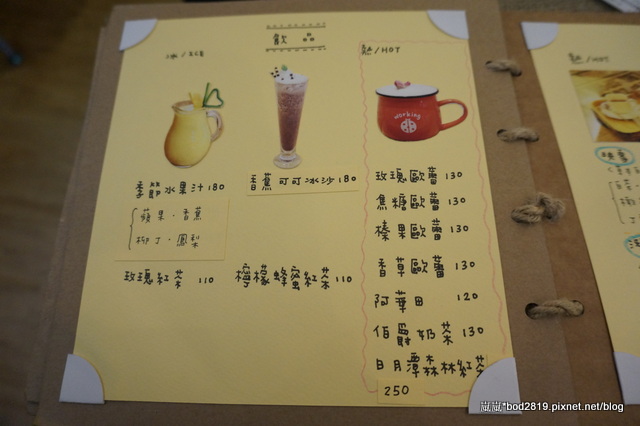 飲品
冰/ICE
季節水果汁 180
蘋果・香蕉
柳丁・鳳梨
玫瑰紅茶 110
香蕉可可冰沙 180
檸檬蜂蜜紅茶 110
熱/HOT
working
玫瑰歐蕾 130
焦糖歐蕾 130
榛果歐蕾 130
香草歐蕾 130
阿華田 120
伯爵奶茶 130
日月潭森林紅茶
250
熱/HOT
嵐嵐*bod2819.pixnet.net/blog